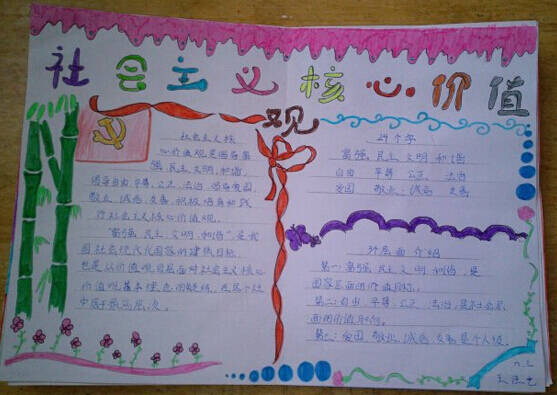 社会主义核心价值
观
社会主义核
心价值观是倡导富
强、民主、文明、和谐,
倡导自由、平等、公正、法治,倡导爱国、
敬业、诚信、友善,积极培育和践
行社会主义核心价值观。
“富强、民主、文明、和谐”,是我
国社会现代化国家的建设目标,
也是从价值观目层面对社会主义核心
价值观基本理念的凝练,在
24个字
富强 民主 文明 和谐
自由 平等 公正 法治
爱国 敬业 诚信 友善
3个层面介绍
第一:富强、民主、文明、和谐,是
国家层面的价值目标。
第二:自由、平等、公正、法治,是社会层
面的价值取向。
爱国、敬业、诚信、友善是个人